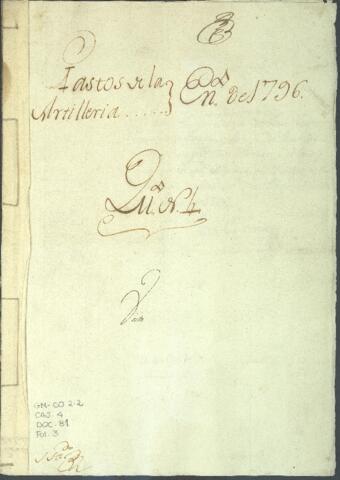 Gastos de la
Artilleria...... } En.º de 1796.
Qu.º N. 4
GM-CO 2-2
CAJ. 4
DOC. 81
Fol. 3